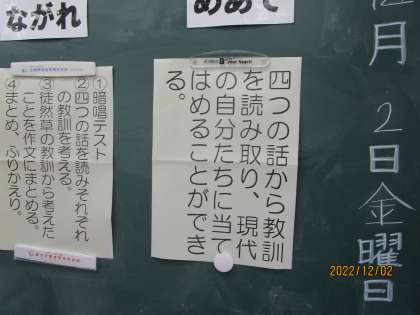 月2日金曜日
めあて
四つの話から教訓
を読み取り、現代
の自分たちに当て
はめることができ
る。
ながれ
①暗唱テスト
②四つの話を読みそれぞれ
の教訓を考える。
③徒然草の教訓から考えた
ことを作文にまとめる。
④まとめ、ふりかえり。
2022/12/02